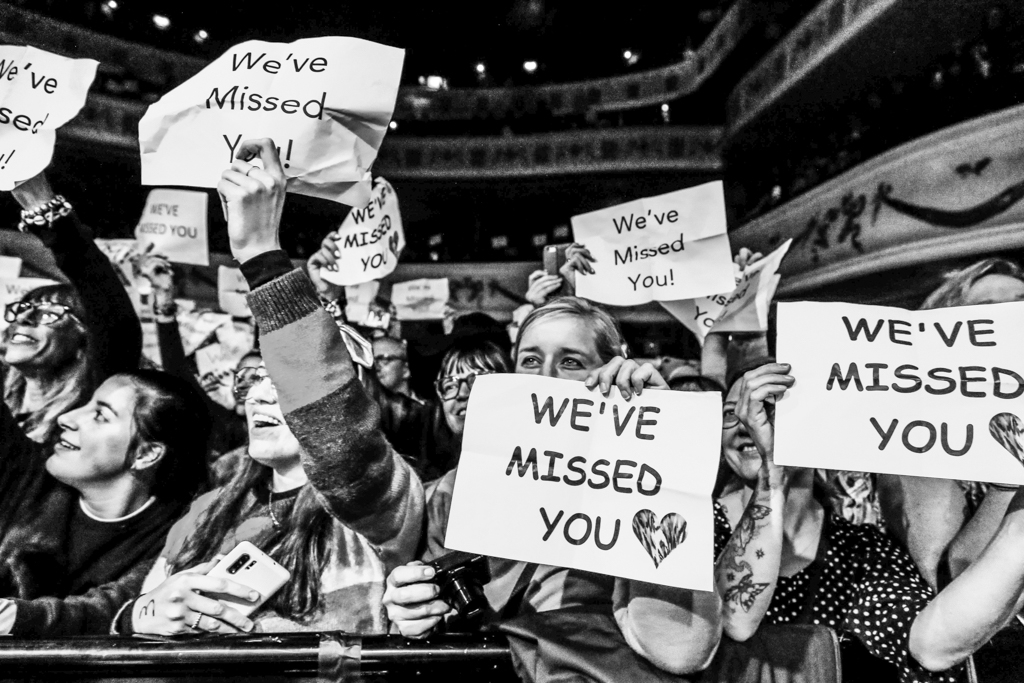 We've
ssed
!
We've
Missed
You!
WE'VE
MISSED YOU
WE'VE
MISSED
YOU
We've
Missed
You!
WE'VE
MISSED
YOU
WE'VE
MISSED
YOU